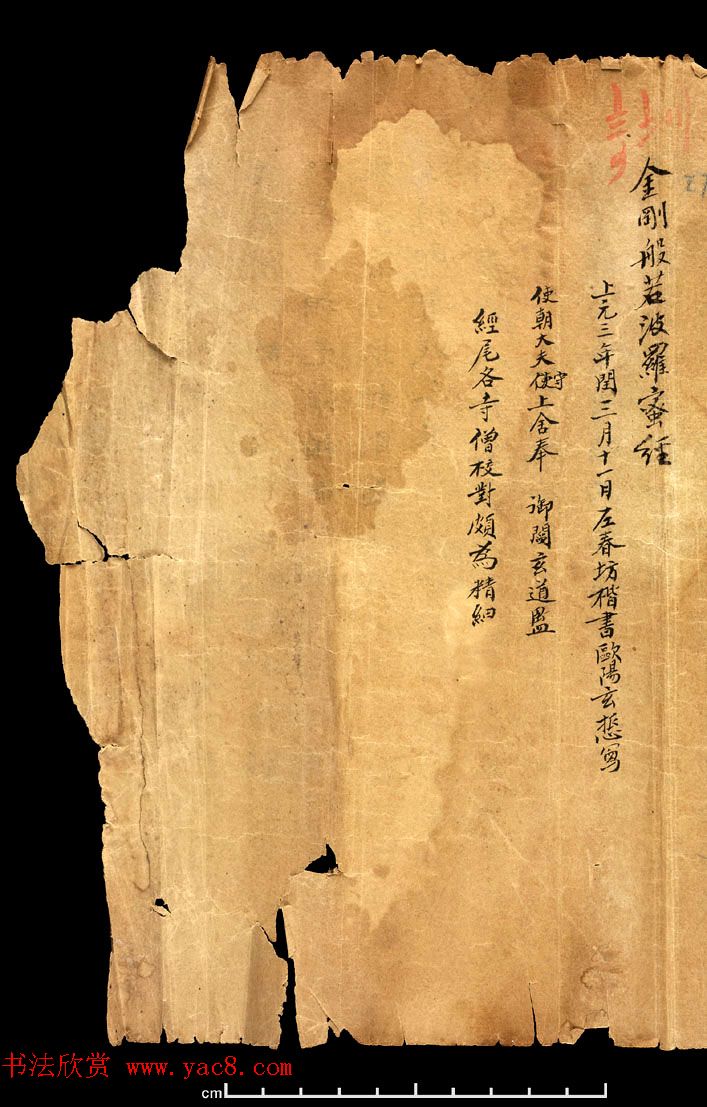 金剛般若波羅蜜經
上元三年閏三月十一日左春坊楷書歐陽玄悊寫
使朝大夫守使上舍奉 御閻玄道監
經尾各寺僧校對頗為精細
书法欣赏 www.yac8.com
cm